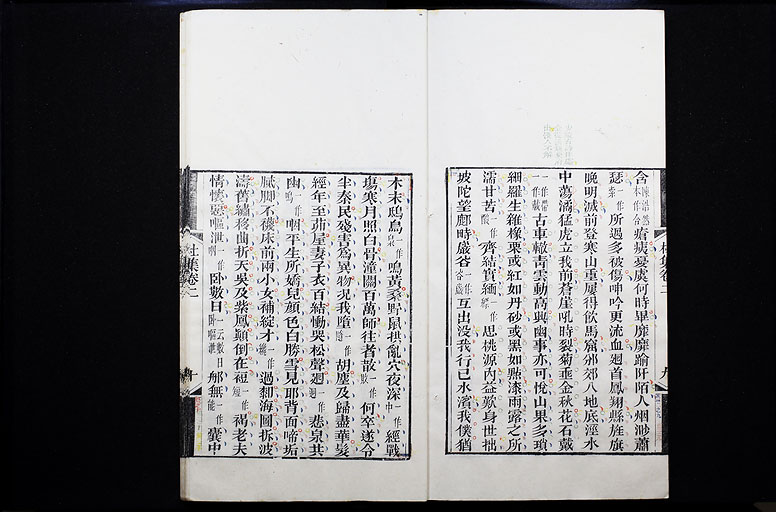 含陳浩然本作合瘡痍憂虞何時畢靡靡踰阡陌人烟渺蕭
瑟一作索所過多被傷呻吟更流血廻首鳳翔縣旌旗
晚明滅前登寒山重屢得飲馬窟邠郊入地底涇水
中蕩潏猛虎立我前蒼崖吼時裂菊垂今秋花石戴
一作帶一作載古車轍青雲動高興幽事亦可悅山果多瑣
細羅生雜橡栗或紅如丹砂或黑如點漆雨露之所
濡甘苦一作酸齊結實緬一作思桃源內益歎身世拙
坡陀望鄜畤巖谷一作谷巖互出沒我行已水濱我僕猶
木末鴟鳥一作梟鳴黃桑野鼠拱亂穴夜深一作中經戰
塲寒月照白骨潼關百萬師往者散一作敗何卒遂令
半秦民殘害為異物况我墮一作隨胡塵及歸盡華髮
經年至茆屋妻子衣百結慟哭松聲廻一作悲泉共
幽一作鳴咽平生所嬌兒顏色白勝雪見耶背面啼垢
膩脚不襪床前兩小女補綻才一作纔過膝海圖拆波
濤舊繡移曲折天吳及紫鳳顛倒在裋一作短褐老夫
情懷惡嘔泄一作咽卧數日一云數日卧嘔泄那無一作能囊中
杜集卷二
十
杜集卷二
九